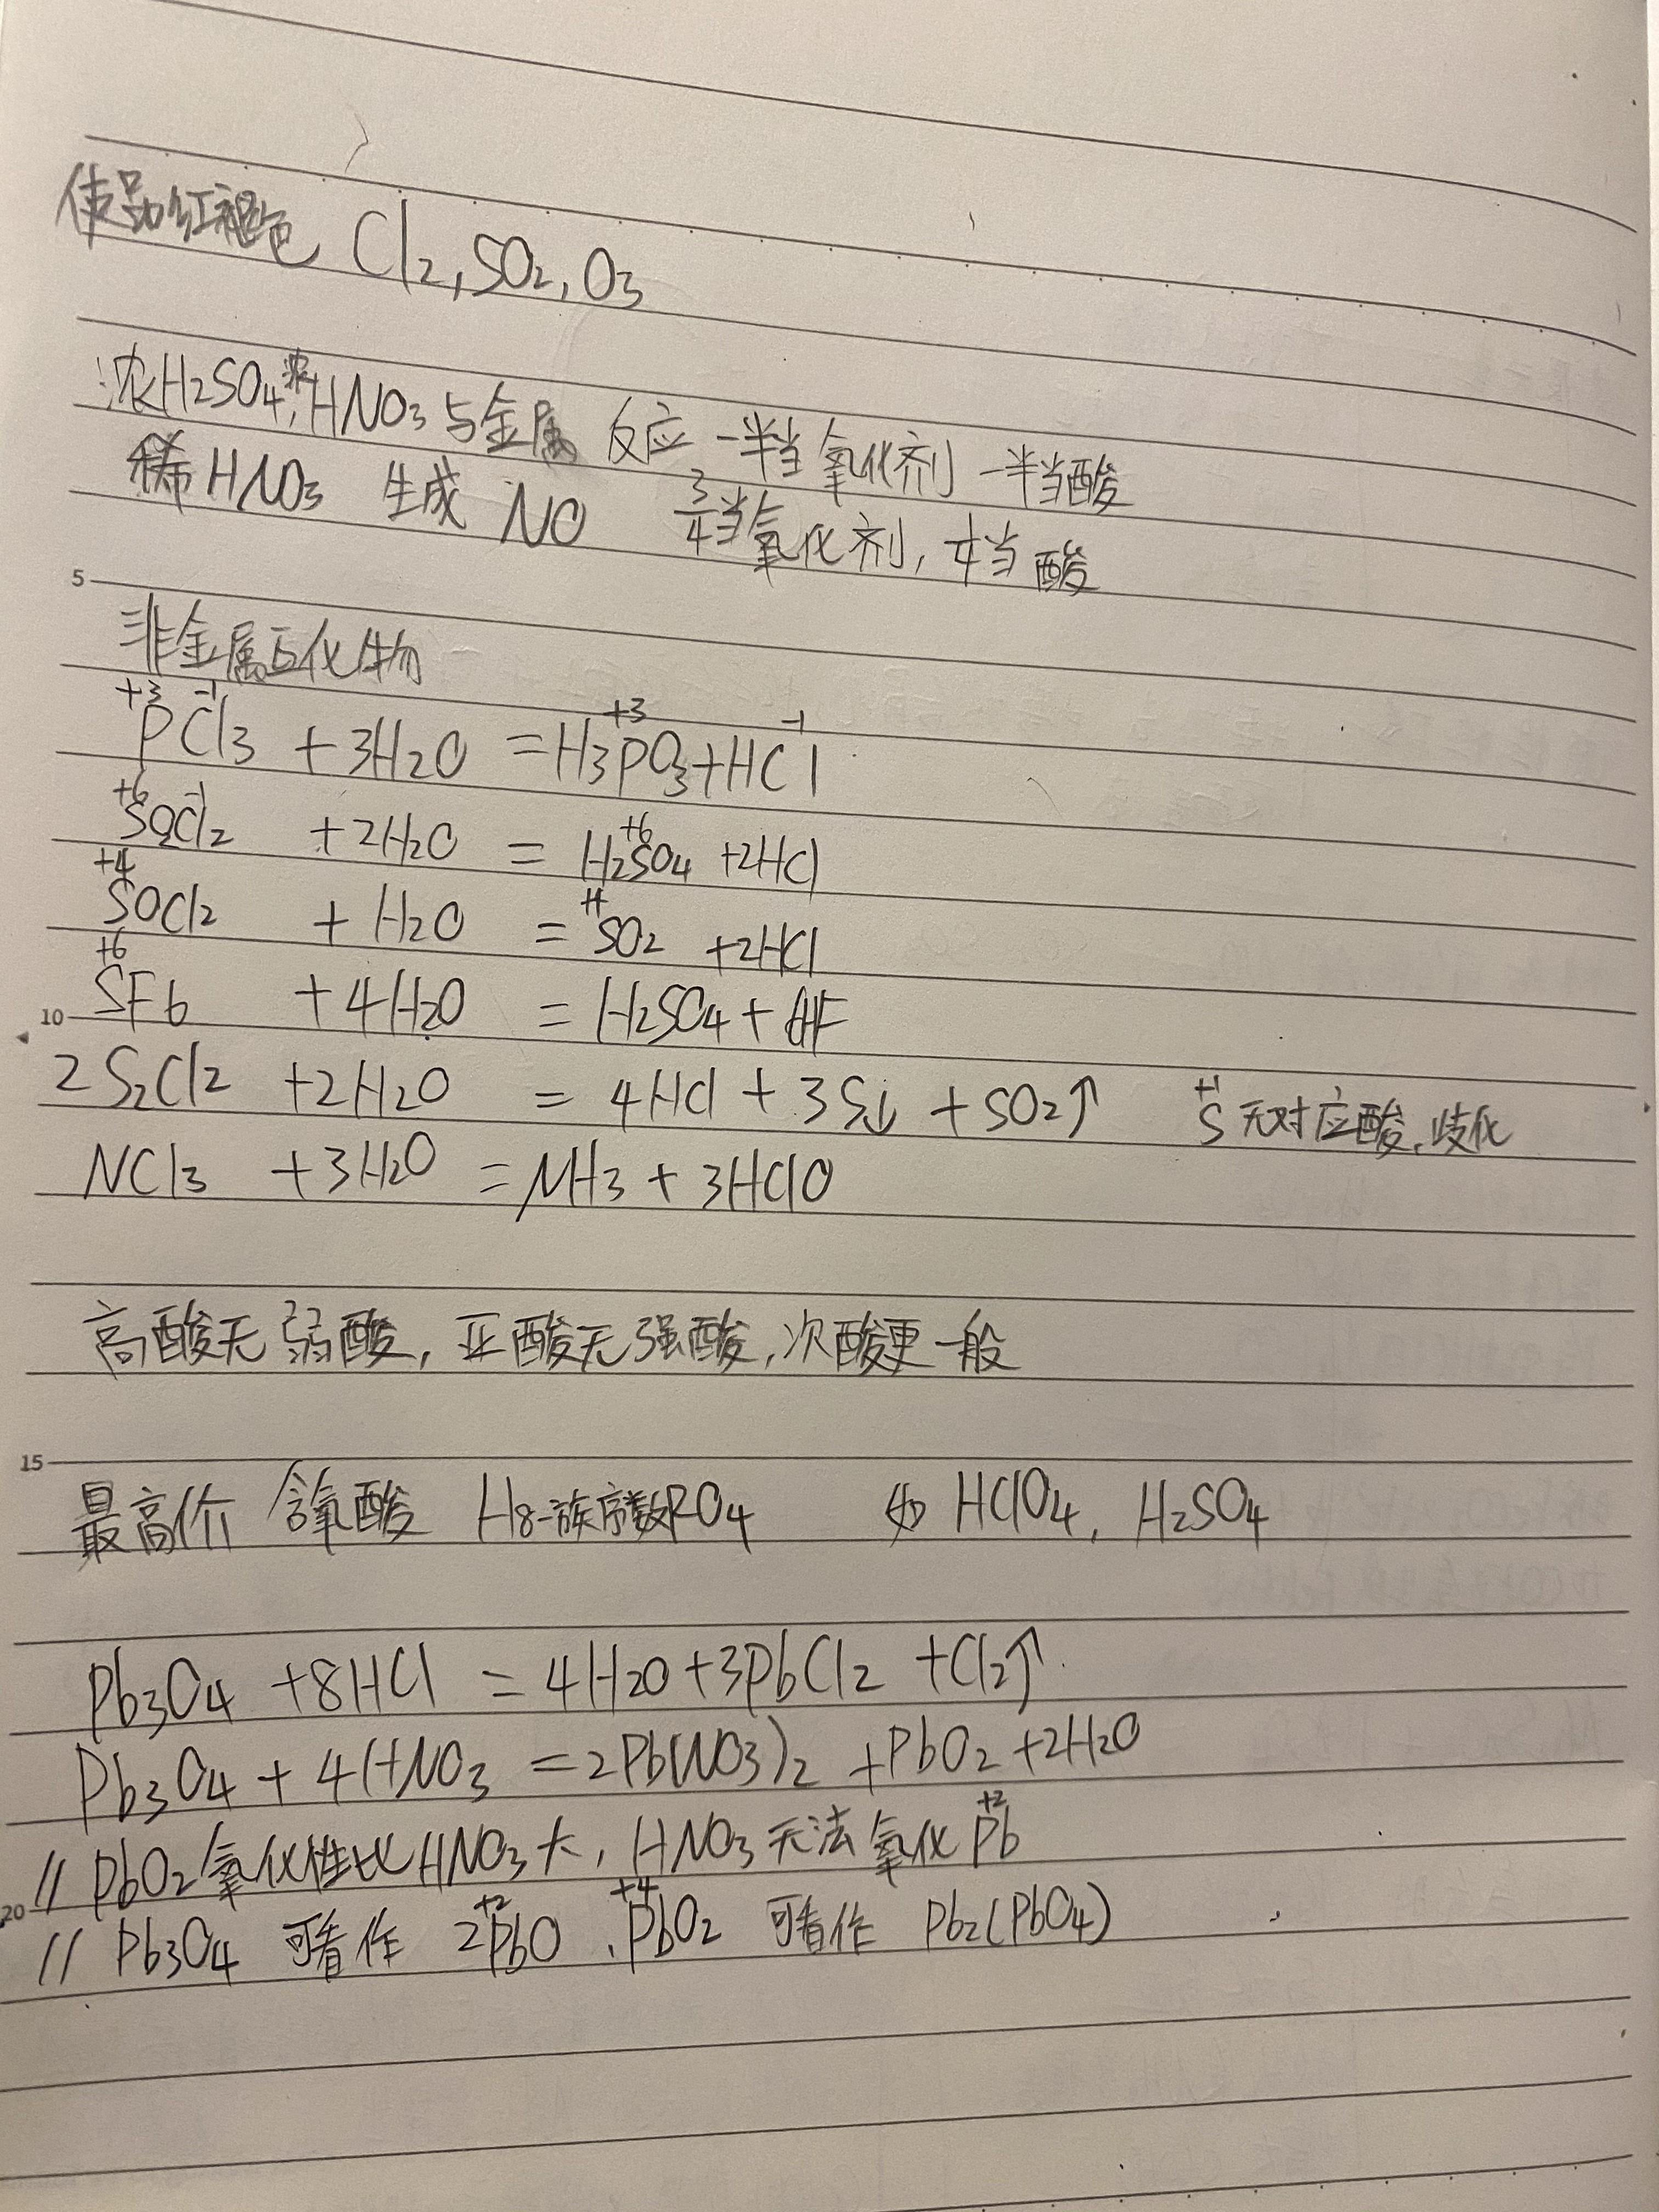 使品红褪色 Cl₂,SO₂,O₃
浓H₂SO₄,浓HNO₃与金属反应 一半当氧化剂 一半当酸
稀HNO₃ 生成 NO 3/4当氧化剂,1/4当酸
5
非金属互化物
+3 -1 +3 -1
PCl₃ + 3H₂O = H₃PO₃+HCl
+6 -1 +6
SO₂Cl₂ + 2H₂O = H₂SO₄ +2HCl
+4 +4
SOCl₂ + H₂O = SO₂ +2HCl
+6
10 SF₆ + 4H₂O = H₂SO₄ + HF
2S₂Cl₂ +2H₂O = 4HCl + 3S↓ + SO₂↑ +1 S无对应酸,歧化
NCl₃ +3H₂O = NH₃ + 3HClO
高酸无弱酸,亚酸无强酸,次酸更一般
15
最高价 含氧酸 H₈₋族序数RO₄ 如 HClO₄, H₂SO₄
Pb₃O₄ +8HCl = 4H₂O+3PbCl₂ +Cl₂↑
Pb₃O₄ + 4HNO₃ =2Pb(NO₃)₂ +PbO₂ +2H₂O
+2
// PbO₂氧化性比HNO₃大, HNO₃无法氧化Pb
20 +2 +4
// Pb₃O₄ 可看作 2PbO·PbO₂ 可看作 Pb₂(PbO₄)